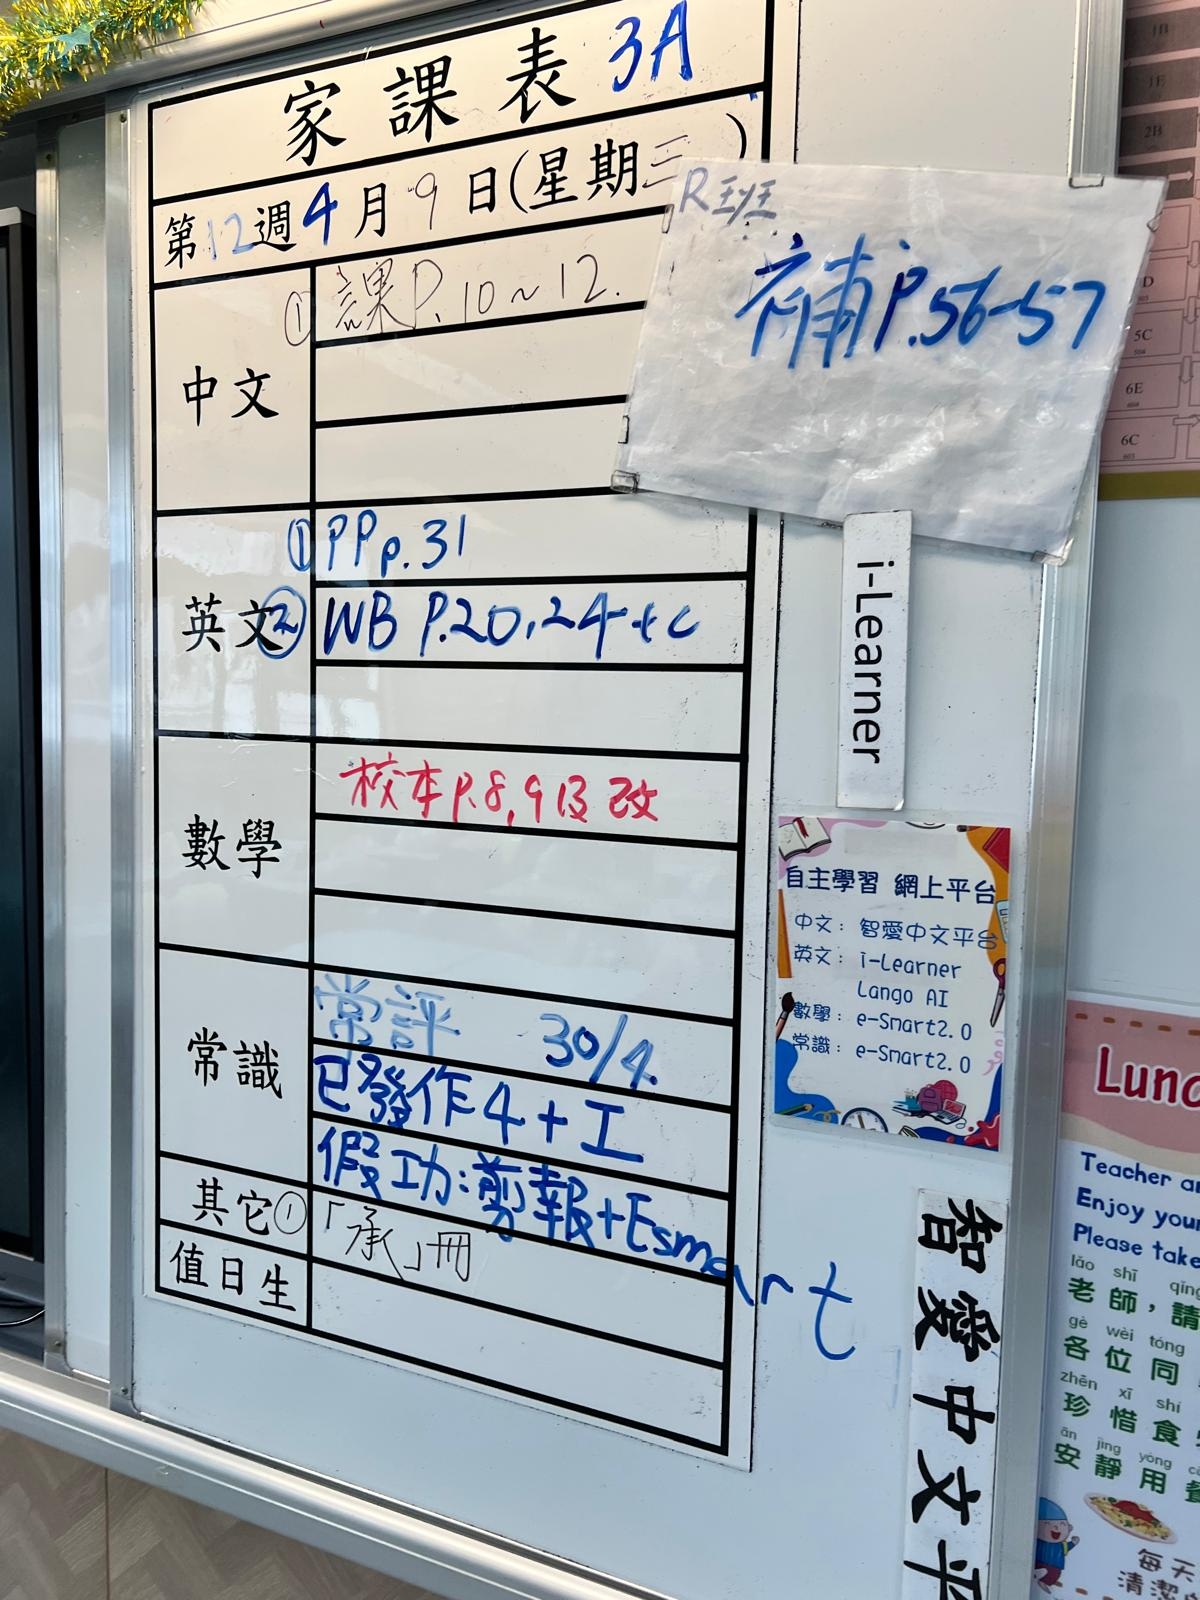 家課表 3A
第12週4月9日(星期三)
中文
① 課P.10~12.
R班
補P.56-57
英文
① PP p.31
② WB P.20,24++c
數學
校本P.8,9及改
常識
常評 30/4.
已發作4+工
假功:剪報+Esmart
其它
① 「承」冊
值日生
i-Learner
自主學習 網上平台
中文: 智愛中文平台
英文: i-Learner
Lango AI
數學: e-Smart2.0
常識: e-Smart2.0
智愛中文平
1B
1E
2B
D
5C
504
6E
604
6C
603
Lunc
Teacher an
Enjoy your
Please take
lǎo shī qǐng
老師，請
gè wèi tóng
各位同
zhēn xī shí
珍惜食
ān jìng yòng
安靜用餐
每天
清潔